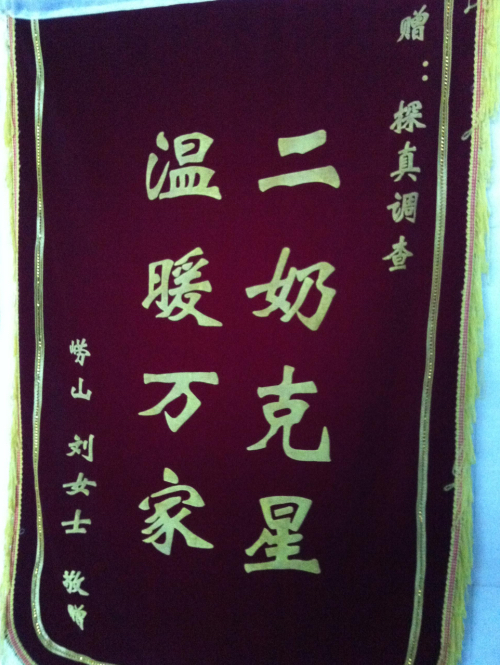 赠：探真调查
二奶克星
温暖万家
崂山 刘女士 敬赠